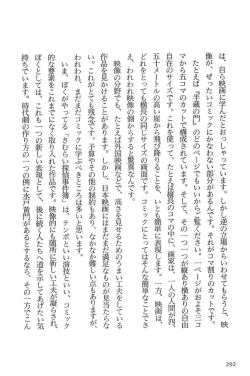 は、自ら映画に学んだとおっしゃっています。しかし逆の立場からいわせてもらうと、映
像が、ぜったいにコミックにかなわない部分があるのです。それがコマ割りのカットです。
たとえば、『半蔵の門』のどのページでもいいから開いてみてください。一ページがおよそ三コ
マから五コマのカットで構成されています。そして、その一つ一つが縦あり横ありの自由
自在のサイズです。これを使って、たとえば縦長のコマの中に、画家は、一人の人間が四、
五十メートルの高さから飛び降りることを、いとも簡単に表現できます。一方、映画は、
どこをとっても横長の同じサイズの画面です。コミックにとってはそんな簡単なことでさ
え、われわれ映像の側からすると驚異なんです。
映像の分野でも、たとえば外国映画などで、高さを見せるためのうまい工夫をしている
作品を見かけることがあります。しかし、日本映画にはまだまだ満足なものがありませ
い。これがとても残念です。予算やその他の制約もあり、なかなか難しい点もありますが、
われわれ、まだまだコミックに学ぶべきところは多いと思います。
いま、ぼくがやってる『さむらい探偵事件簿』は、テンポといい演技といい、コミック
的な要素をこれまでになく取り入れた作品です。映像的にも随所に新しい工夫が凝らされ、
ぼくとしては、これも一つの新しい表現として、後に続く人たちへ道を示してあげたい気
持ちでいます。時代劇の作り方の一つの例に水戸黄門があるとするなら、その一方でこん
292